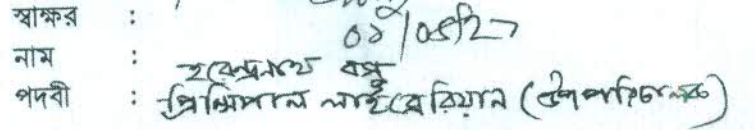 স্বাক্ষর :
০১/০৫/২১
নাম : হরেন্দ্রনাথ বসু
পদবী : প্রিন্সিপাল লাইব্রেরিয়ান (উপপরিচালক)